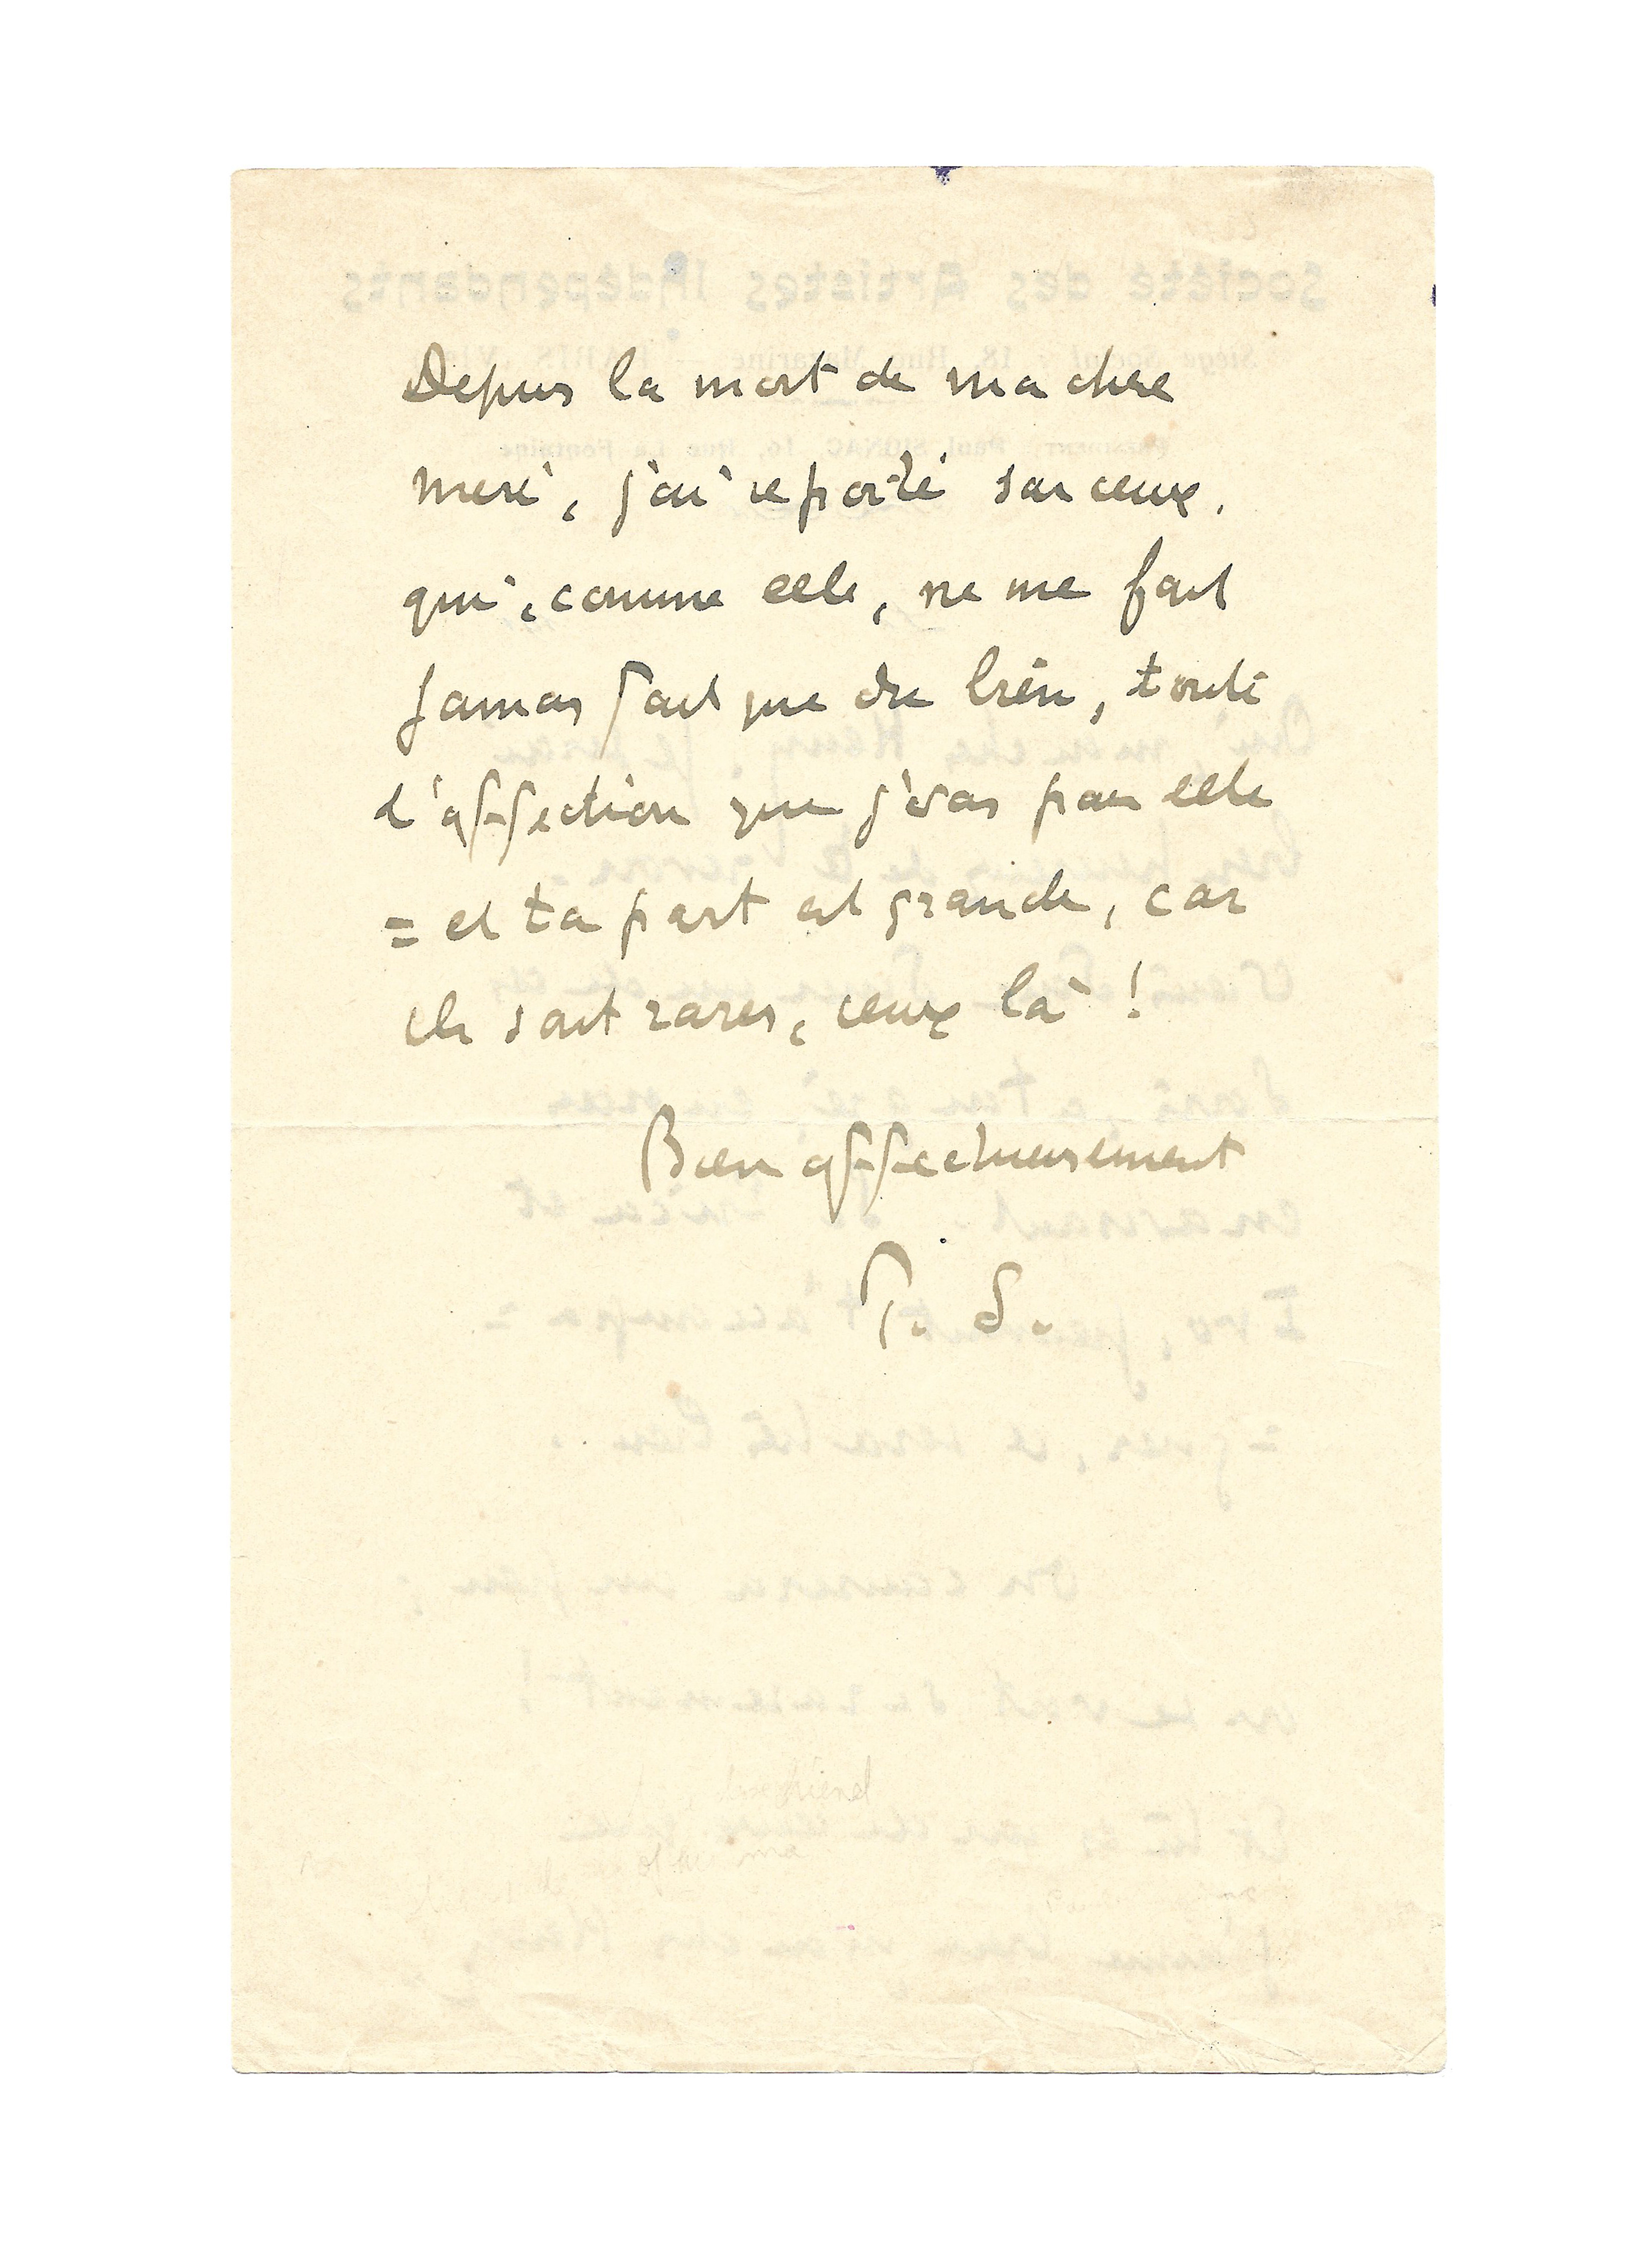 Depuis la mort de ma chere
mere, j'ai reporté sur ceux,
qui, comme elle, ne me font
jamais fait que du bien, toute
l'affection que j'avais pour elle
= et ta part est grande, car
ils sont rares, ceux là !
Bien affectueusement
P. S.